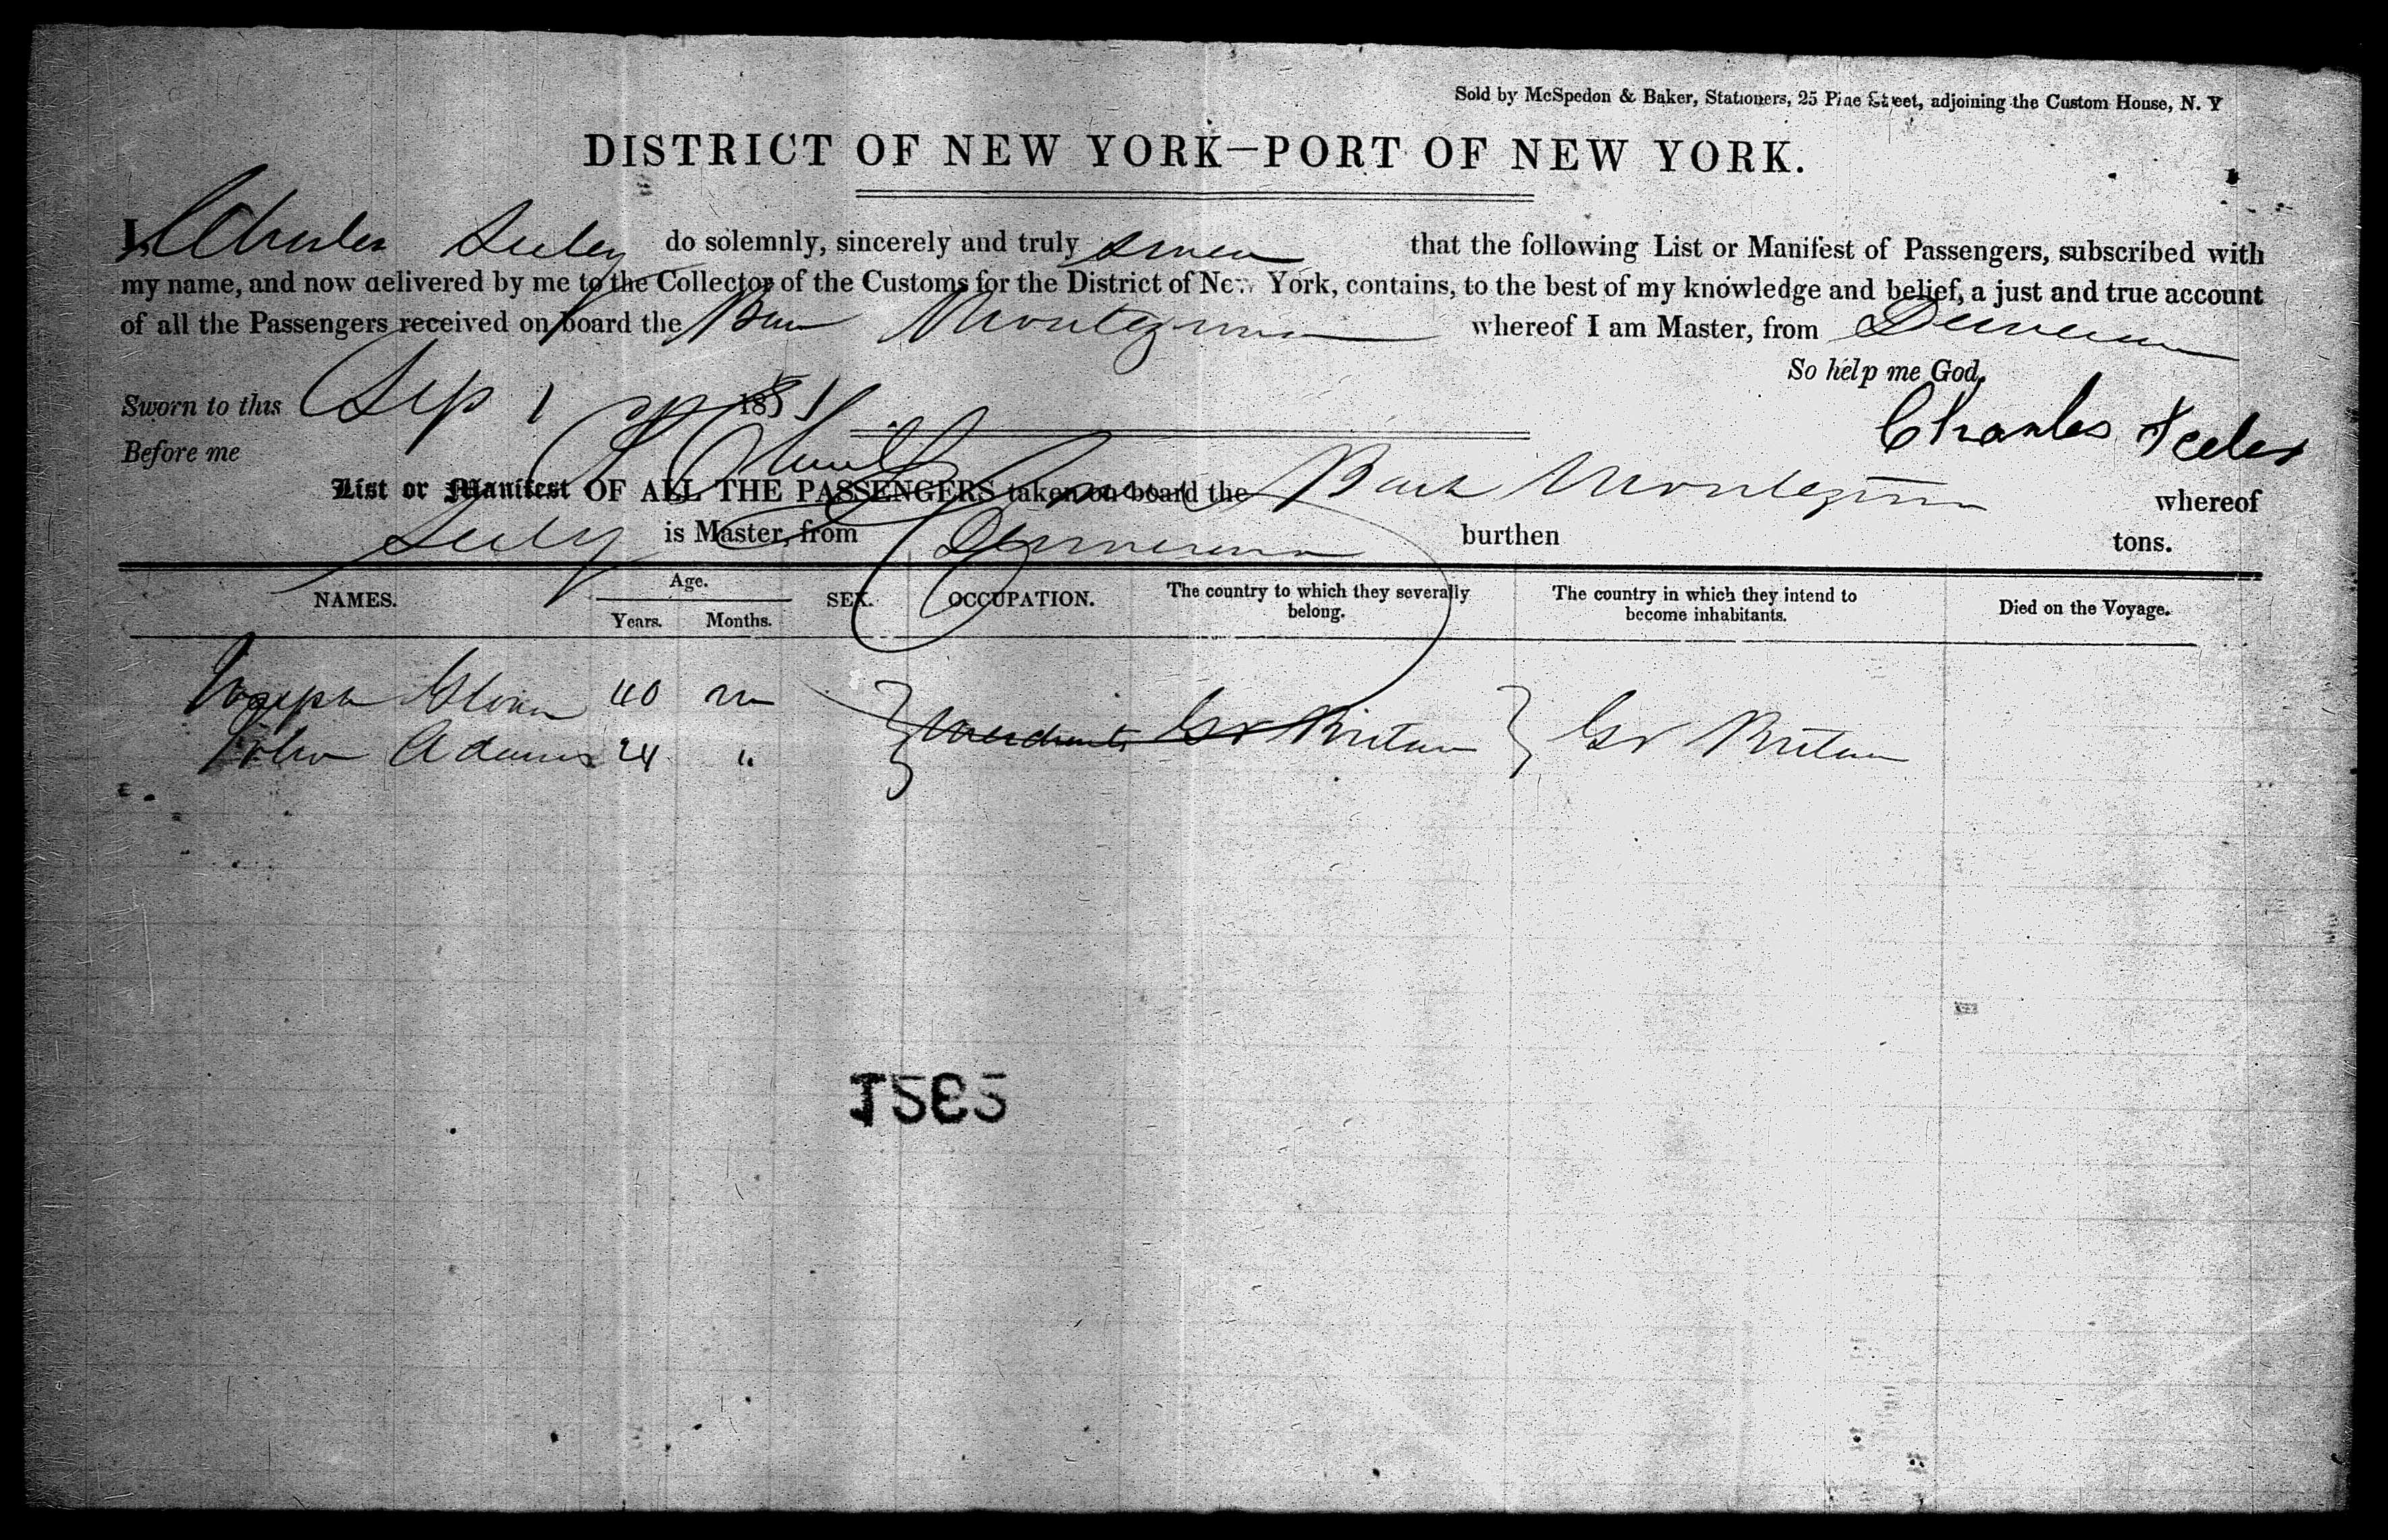 Sold by McSpedon & Baker, Stationers, 25 Pine Street, adjoining the Custom House, N. Y
DISTRICT OF NEW YORK—PORT OF NEW YORK.
I, Charles Seeley do solemnly, sincerely and truly swear that the following List or Manifest of Passengers, subscribed with
my name, and now delivered by me to the Collector of the Customs for the District of New York, contains, to the best of my knowledge and belief, a just and true account
of all the Passengers received on board the Bark Montezuma whereof I am Master, from
So help me God,
Sworn to this Sep 1 1851
Charles Seeley
Before me
List or Manifest OF ALL THE PASSENGERS taken on board the Bark Montezuma whereof
Seeley is Master, from burthen tons.
NAMES. Age. Years. Months. SEX. OCCUPATION. The country to which they severally belong. The country in which they intend to become inhabitants. Died on the Voyage.
Joseph 40 m Merchants Gr Britain Gr Britain
John Adams 24 "